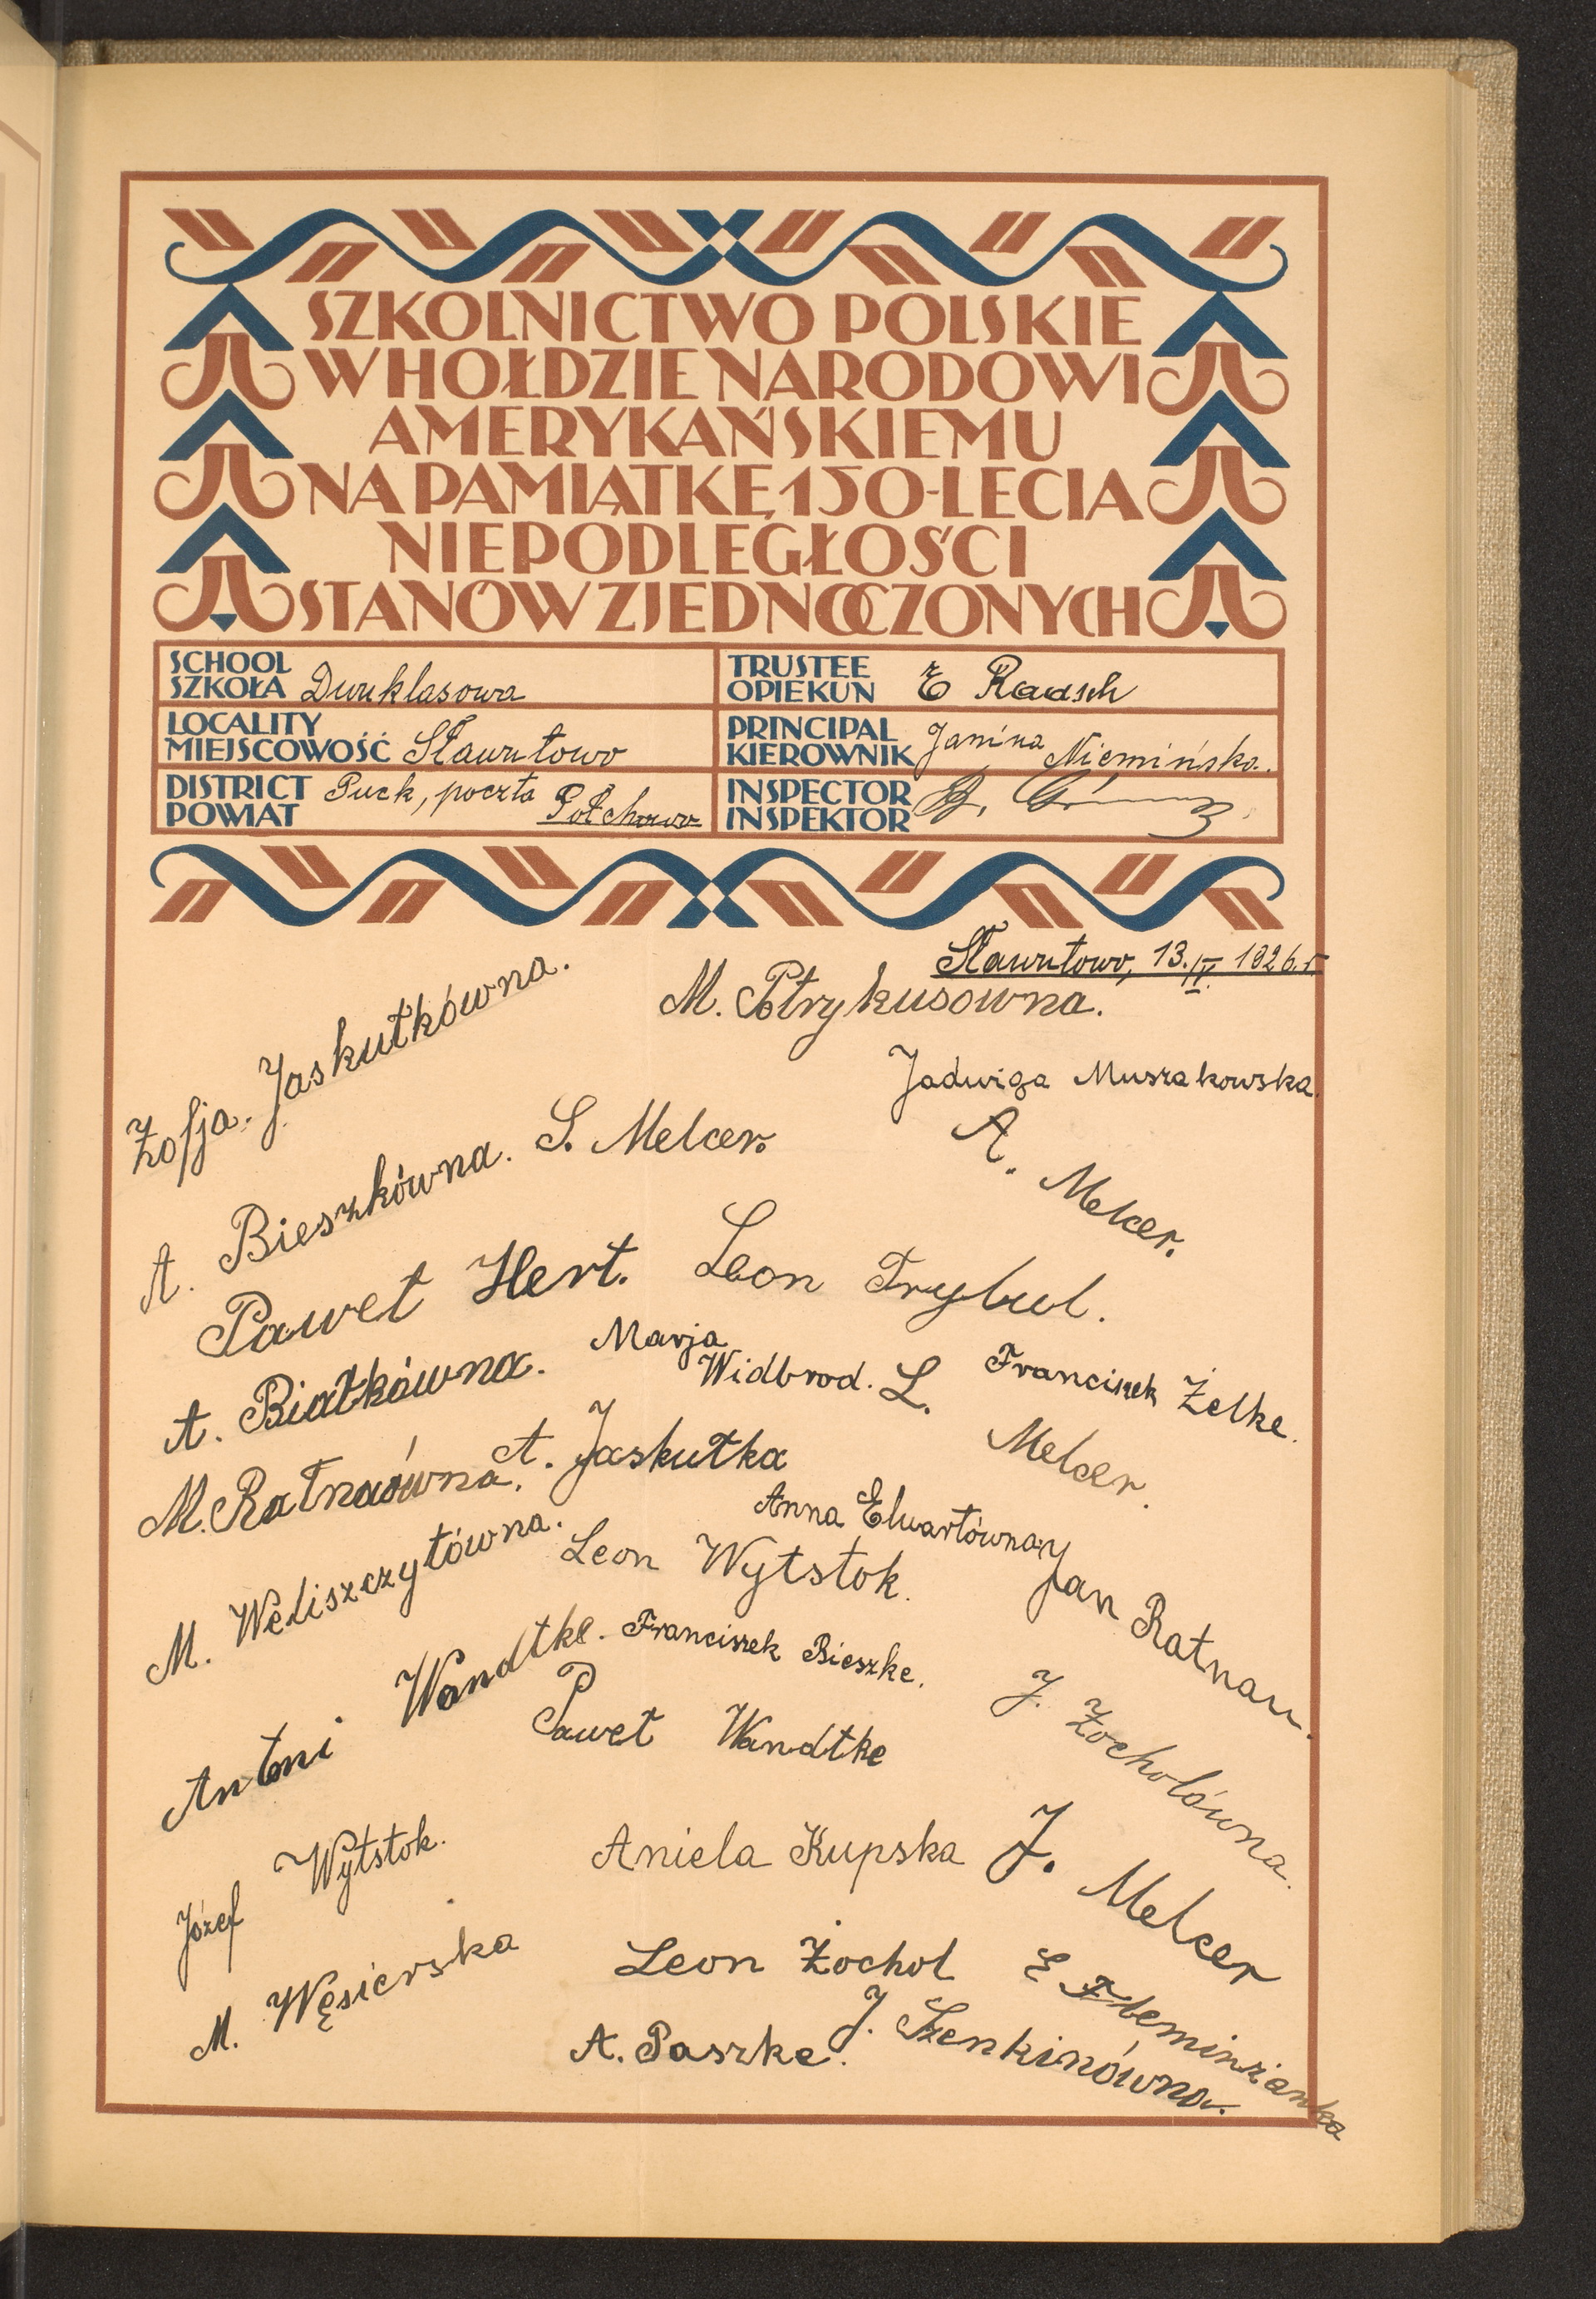 SZKOLNICTWO POLSKIE
W HOŁDZIE NARODOWI
AMERYKAŃSKIEMU
NA PAMIĄTKĘ 150-LECIA
NIEPODLEGŁOŚCI
STANÓW ZJEDNOCZONYCH
SCHOOL
SZKOŁA Dwuklasowa
TRUSTEE
OPIEKUN E Raasch
LOCALITY
MIEJSCOWOŚĆ Sławutowo
PRINCIPAL
KIEROWNIK Janina Niemińska.
DISTRICT
POWIAT Puck, poczta Połchowo
INSPECTOR
INSPEKTOR
Sławutowo, 13.IV. 1926.r
Zofja. Jaskułkówna.
M. Potrykusówna.
Jadwiga Muszakowska.
A. Bieszkówna.
S. Melcer.
A. Melcer.
Paweł Hert.
Leon Trybul.
A. Białkówna.
Marja Widbrod.
L. Melcer.
Franciszek Żelke.
M. Ratnaówna.
A. Jaskułka
Anna Elwartówna
M. Weliszczytówna.
Leon Wytstok.
Jan Ratnau.
Antoni Wandtke.
Franciszek Bieszke.
J. Żochołówna.
Paweł Wandtke
Józef Wytstok.
Aniela Kupska
J. Melcer
M. Węsierska
Leon Żochoł
E Fleminżanka
A. Paszke.
J. Szenkinówna.